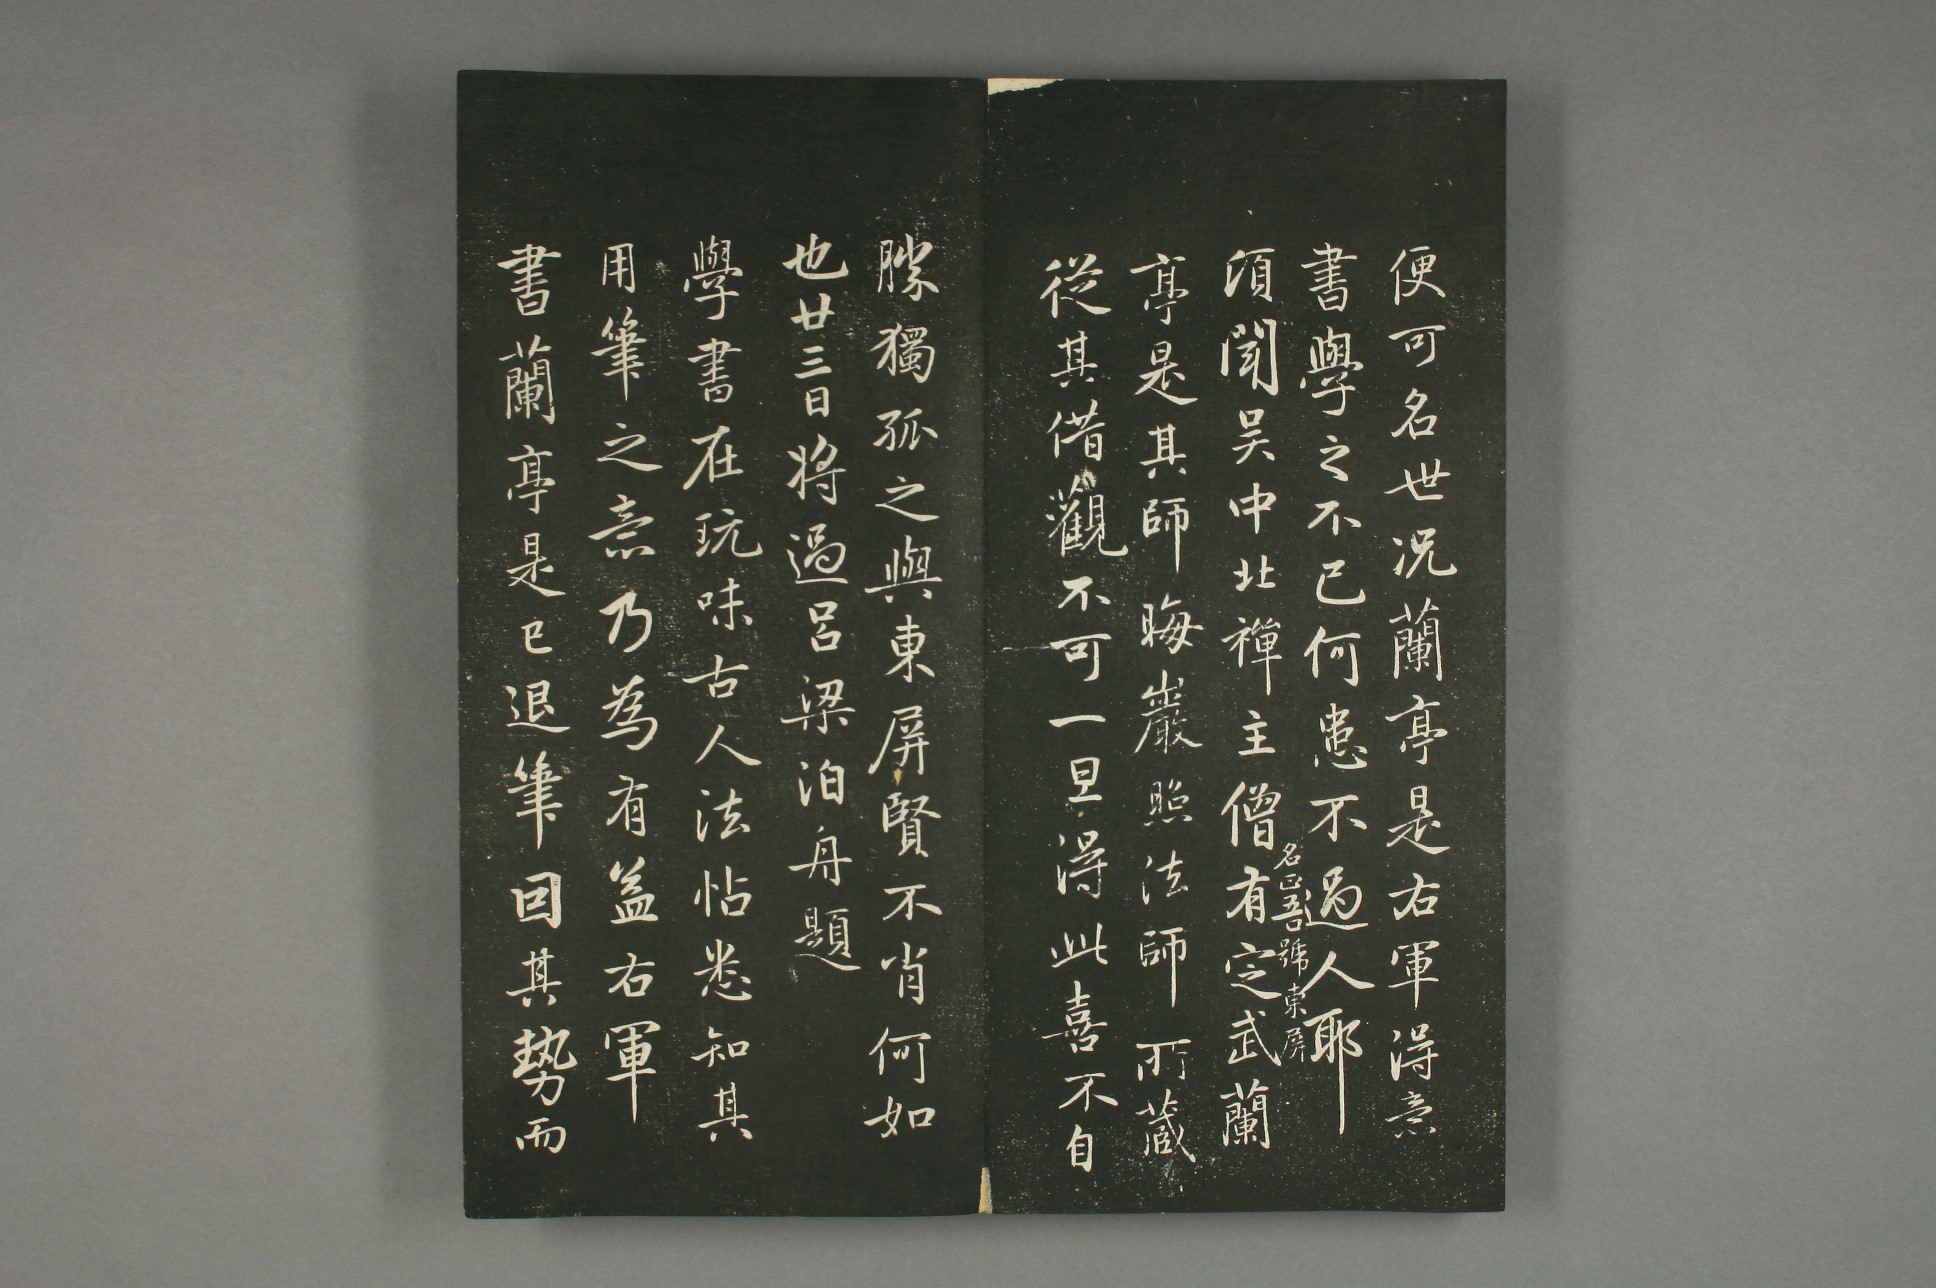 便可名世况蘭亭是右軍得意
書學之不已何患不過人耶
頃聞吴中北禪主僧有定武蘭
名正吾號東屏
亭是其師晦巖照法師所藏
從其借觀不可一旦得此喜不自
勝獨孤之與東屏賢不肖何如
也廿三日將過吕梁泊舟題
學書在玩味古人法帖悉知其
用筆之意乃為有益右軍
書蘭亭是已退筆因其勢而